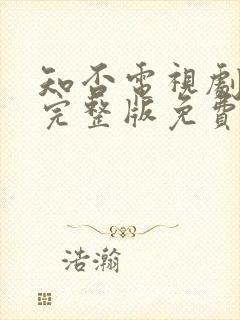 知否電視劇
完整版免費
浩瀚